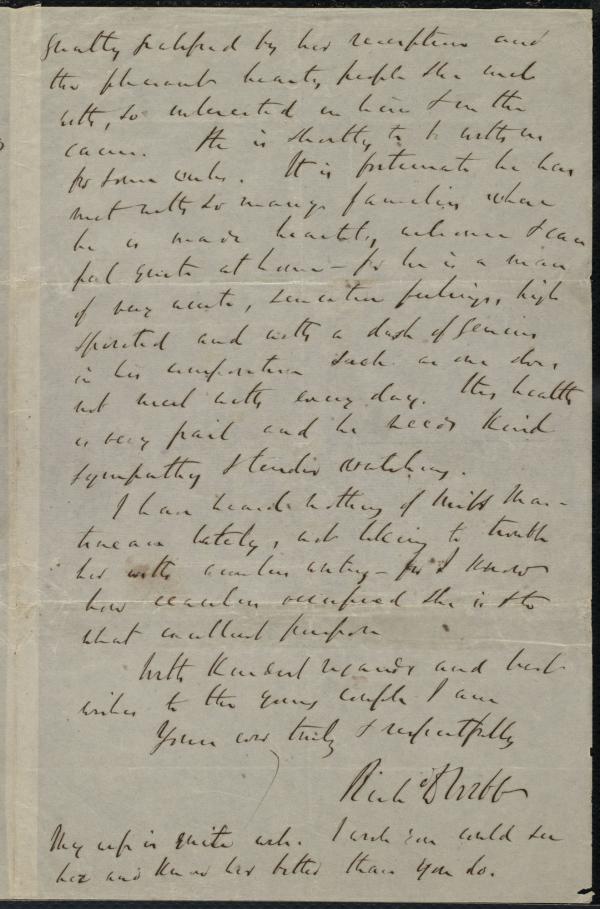 greatly gratified by his reception and
the pleasant hearty people she met
with, so interested in him & in the
cause. He is shortly to be with us
for some weeks. It is fortunate he has
met with so many families where
he is made heartily welcome & can
feel quite at home — for he is a man
of very acute, sensitive feelings, high
spirited and with a dash of genius
in his composition such as one does
not meet with every day. His health
is very frail and he needs kind
sympathy & tender watching.
I have heard nothing of Miss Mar-
tineau lately, not liking to trouble
her with needless writing — for I know
how ceaseless occupied she is & to
what excellent purpose
With kindest regards and best
wishes to the young couple I am
Yours very truly & respectfully
Rich<sup>d</sup> D Webb
My wife is quite well. I wish you could see
her and know her better than you do.